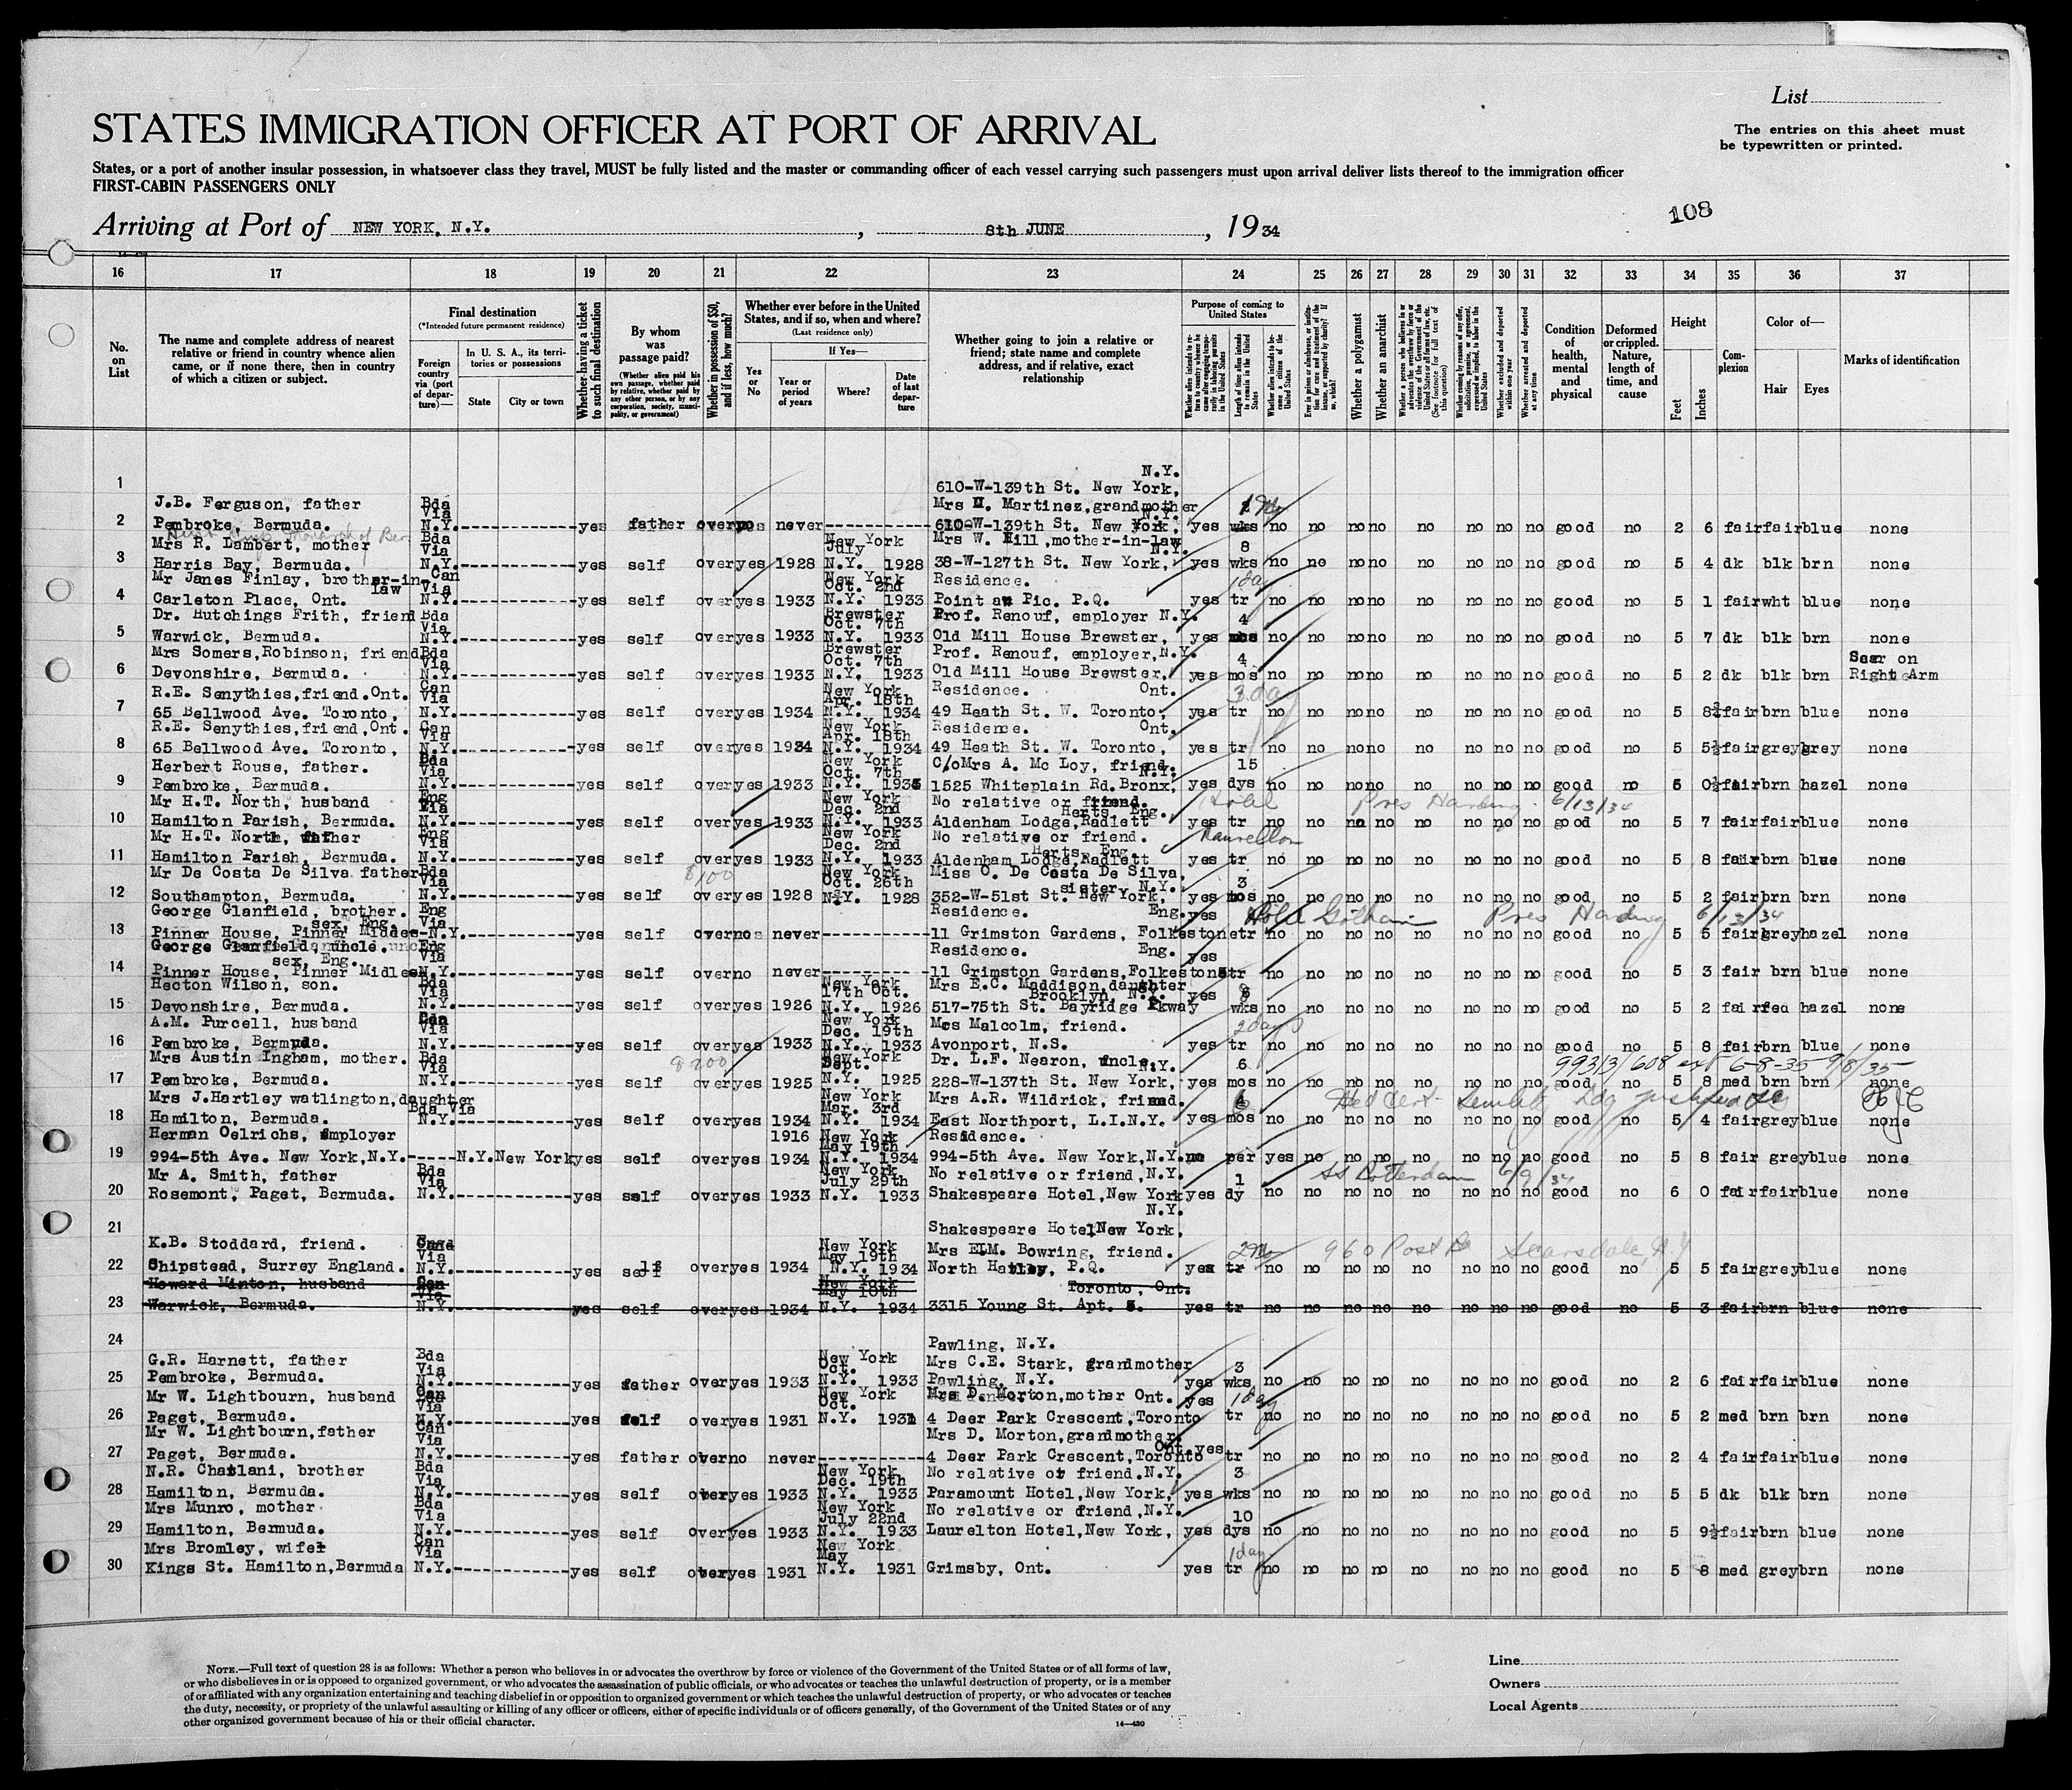 List
STATES IMMIGRATION OFFICER AT PORT OF ARRIVAL
The entries on this sheet must
be typewritten or printed.
States, or a port of another insular possession, in whatsoever class they travel, MUST be fully listed and the master or commanding officer of each vessel carrying such passengers must upon arrival deliver lists thereof to the immigration officer
FIRST-CABIN PASSENGERS ONLY
108
Arriving at Port of NEW YORK, N.Y. , 8th JUNE , 1934
16 17 18 19 20 21 22 23 24 25 26 27 28 29 30 31 32 33 34 35 36 37
No. on List
The name and complete address of nearest relative or friend in country whence alien came, or if none there, then in country of which a citizen or subject.
Final destination
(*Intended future permanent residence)
Foreign country via (port of departure)—
In U. S. A., its territories or possessions
State
City or town
Whether having a ticket to such final destination
By whom was passage paid?
(Whether alien paid his own passage, whether paid by relative, whether paid by any other person, or by any corporation, society, municipality, or government)
Whether in possession of $50, and if less, how much?
Whether ever before in the United States, and if so, when and where?
(Last residence only)
Yes or No
If Yes—
Year or period of years
Where?
Date of last departure
Whether going to join a relative or friend; state name and complete address, and if relative, exact relationship
Purpose of coming to United States
Length of time alien intends to remain in the United States
Whether alien intends to become a citizen of the United States
Whether a polygamist
Whether an anarchist
Whether excluded and deported within one year
Whether arrested and deported at any time
Condition of health, mental and physical
Deformed or crippled. Nature, length of time, and cause
Height
Feet
Inches
Complexion
Color of—
Hair
Eyes
Marks of identification
1
N.Y.
610-W-139th St. New York,
J.B. Ferguson, father Bda Via Mrs Martinez, grandmother N.Y.
2 Pembroke, Bermuda. N.Y. yes father over never 610-W-139th St. New York, yes wks no no no no no no no no good no 2 6 fair fair blue none
Mrs R. Lambert, mother Bda Via New York July Mrs W. Hill, mother-in-law N.Y. 8
3 Harris Bay, Bermuda. N.Y. yes self over yes 1928 N.Y. 1928 38-W-127th St. New York, yes wks no no no no no no no no good no 5 4 dk blk brn none
Mr Janes Finlay, brother-in-law Can Via New York Oct. 2nd Residence. 1 day
4 Carleton Place, Ont. N.Y. yes self over yes 1933 N.Y. 1933 Point au Pic. P.Q. yes tr no no no no no no no no good no 5 1 fair wht blue none
Dr. Hutchings Frith, friend Bda Via Brewster Oct. 7th Prof. Renouf, employer N.Y. 4
5 Warwick, Bermuda. N.Y. yes self over yes 1933 N.Y. 1933 Old Mill House Brewster, yes mos no no no no no no no no good no 5 7 dk blk brn none
Mrs Somers, Robinson, friend Bda Via Brewster Oct. 7th Prof. Renouf, employer, N.Y. 4 Scar on
6 Devonshire, Bermuda. N.Y. yes self over yes 1933 N.Y. 1933 Old Mill House Brewster, yes mos no no no no no no no no good no 5 2 dk blk brn Right Arm
R.E. Senythies, friend. Ont. Can Via New York Apr. 18th Residence. Ont. 3 da
7 65 Bellwood Ave. Toronto, N.Y. yes self over yes 1934 N.Y. 1934 49 Heath St. W. Toronto, yes tr no no no no no no no no good no 5 8½ fair brn blue none
R.E. Senythies, friend, Ont. Can Via New York Apr. 18th Residence. Ont.
8 65 Bellwood Ave. Toronto, N.Y. yes self over yes 1934 N.Y. 1934 49 Heath St. W. Toronto, yes tr no no no no no no no no good no 5 5½ fair grey grey none
Herbert Rouse, father. Bda Via New York Oct. 7th C/o Mrs A. Mc Loy, friend. N.Y. 15
9 Pembroke, Bermuda. N.Y. yes self over yes 1933 N.Y. 1933 1525 Whiteplain Rd. Bronx, yes dys no no no no no no no no good no 5 0½ fair brn hazel none
Mr H.T. North, husband Eng Via New York Dec. 2nd No relative or friend. Herts, Eng. Hold Pres Harding. 6/13/34
10 Hamilton Parish, Bermuda. N.Y. yes self over yes 1933 N.Y. 1933 Aldenham Lodge, Radlett yes tr no no no no no no no no good no 5 7 fair fair blue none
Mr H.T. North, father Eng Via New York Dec. 2nd No relative or friend. Herts, Eng.
11 Hamilton Parish, Bermuda. N.Y. yes self over yes 1933 N.Y. 1933 Aldenham Lodge, Radlett yes tr no no no no no no no no good no 5 8 fair brn blue none
Mr De Costa De Silva father Bda Via $100 New York Oct. 26th Miss O. De Costa De Silva, sister N.Y. 3
12 Southampton, Bermuda. N.Y. yes self over yes 1928 N.Y. 1928 352-W-51st St. New York, yes mos no no no no no no no no good no 5 2 fair brn brn none
George Glanfield, brother. Eng Via Residence. Eng. yes Hold Pres Harding 6/13/34
13 Pinner House, Pinner Middlesex, Eng. N.Y. yes self over no never 11 Grimston Gardens, Folkestone tr no no no no no no no no good no 5 5 fair grey hazel none
George Glanfield, uncle. Eng Via Residence. Eng. yes
14 Pinner House, Pinner Midlesex, Eng. N.Y. yes self over no never 11 Grimston Gardens, Folkestone tr no no no no no no no no good no 5 3 fair brn blue none
Hecton Wilson, son. Bda Via New York 17th Oct. Mrs E.C. Maddison, daughter Brooklyn, N.Y. yes 8
15 Devonshire, Bermuda. N.Y. yes self over yes 1926 N.Y. 1926 517-75th St. Bayridge Pkway wks no no no no no no no no good no 5 2 fair red hazel none
A.M. Purcell, husband Can Via New York Dec. 19th Mrs Malcolm, friend. 2 days
16 Pembroke, Bermuda. N.Y. yes self over yes 1933 N.Y. 1933 Avonport, N.S. yes tr no no no no no no no no good no 5 8 fair brn blue none
Mrs Austin Ingham, mother. Bda Via $200 New York Sept. Dr. L.F. Nearon, uncle N.Y. 6 99313/608 ext 6-8-35 9/8/35
17 Pembroke, Bermuda. N.Y. yes self over yes 1925 N.Y. 1925 228-W-137th St. New York, yes mos no no no no no no no no good no 5 8 med brn brn none
Mrs J. Hartley watlington, daughter Bda Via New York Mar. 3rd Mrs A.R. Wildrick, friend. Med Cert
18 Hamilton, Bermuda. N.Y. yes self over yes 1934 N.Y. 1934 East Northport, L.I.N.Y. yes mos no no no no no no no no good no 5 4 fair grey blue none
Herman Oelrichs, employer 1916 New York May 19th Residence.
19 994-5th Ave. New York, N.Y. N.Y. New York yes self over yes 1934 N.Y. 1934 994-5th Ave. New York, N.Y. no per yes no no no no no no no good no 5 8 fair grey blue none
Mr A. Smith, father Bda Via New York July 29th No relative or friend, N.Y. 1 SS Rotterdam 6/9/34
20 Rosemont, Paget, Bermuda. N.Y. yes self over yes 1933 N.Y. 1933 Shakespeare Hotel, New York yes dy no no no no no no no no good no 6 0 fair fair blue none
21 N.Y.
Shakespeare Hotel, New York,
K.B. Stoddard, friend. Via New York May 19th Mrs E.M. Bowring, friend. 2 mo 960 Post Rd Scarsdale, N.Y
22 Chipstead, Surrey England. N.Y. yes self over yes 1934 N.Y. 1934 North Hatley, P.Q. yes tr no no no no no no no no good no 5 5 fair grey blue none
Howard Minton, husband Can Via New York May 10th Toronto, Ont.
23 Warwick, Bermuda. N.Y. yes self over yes 1934 N.Y. 1934 3315 Young St. Apt. yes tr no no no no no no no no good no 5 3 fair brn blue none
24 Pawling, N.Y.
G.R. Harnett, father Bda Via New York Oct. Mrs C.E. Stark, grandmother 3
25 Pembroke, Bermuda. N.Y. yes father over yes 1933 N.Y. 1933 Pawling, N.Y. yes wks no no no no no no no no good no 2 6 fair fair blue none
Mr W. Lightbourn, husband Can Via New York Oct. Mrs D. Morton, mother Ont. yes 1 day
26 Paget, Bermuda. N.Y. yes self over yes 1931 N.Y. 1931 4 Deer Park Crescent, Toronto tr no no no no no no no no good no 5 2 med brn brn none
Mr W. Lightbourn, father Can Via Mrs D. Morton, grandmother, Ont. yes
27 Paget, Bermuda. N.Y. yes father over no never 4 Deer Park Crescent, Toronto tr no no no no no no no no good no 2 4 fair fair blue none
N.R. Chatlani, brother Bda Via New York Dec. 19th No relative or friend. N.Y. 3
28 Hamilton, Bermuda. N.Y. yes self over yes 1933 N.Y. 1933 Paramount Hotel, New York, yes wks no no no no no no no no good no 5 5 dk blk brn none
Mrs Munro, mother Bda Via New York July 22nd No relative or friend, N.Y. 10
29 Hamilton, Bermuda. N.Y. yes self over yes 1933 N.Y. 1933 Laurelton Hotel, New York, yes dys no no no no no no no no good no 5 9½ fair brn blue none
Mrs Bromley, wife Can Via New York May 1 day
30 Kings St. Hamilton, Bermuda N.Y. yes self over yes 1931 N.Y. 1931 Grimsby, Ont. yes tr no no no no no no no no good no 5 8 med grey brn none
NOTE.—Full text of question 28 is as follows: Whether a person who believes in or advocates the overthrow by force or violence of the Government of the United States or of all forms of law,
or who disbelieves in or is opposed to organized government, or who advocates the assassination of public officials, or who advocates or teaches the unlawful destruction of property, or is a member
of or affiliated with any organization entertaining and teaching disbelief in or opposition to organized government or which teaches the unlawful destruction of property, or who advocates or teaches
the duty, necessity, or propriety of the unlawful assaulting or killing of any officer or officers, either of specific individuals or of officers generally, of the Government of the United States or of any
other organized government because of his or their official character.
14—430
Line
Owners
Local Agents